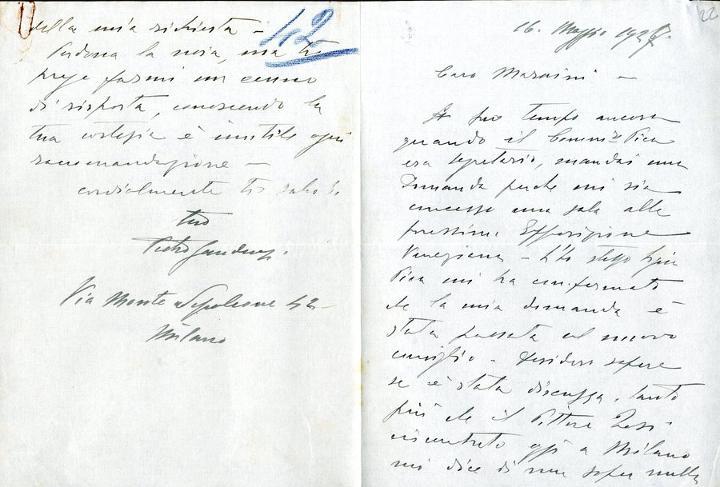 22
16. Maggio 1927.
Caro Maraini –
A suo tempo ancora
quando il Comm.re Pica
era segretario, mandai una
domanda perchè mi sia
concesso una sala alla
prossima Esposizione
Veneziana – L'
Pica mi ha confermato
che la mia domanda è
stata passata al nuovo
consiglio – desidero sapere
se è stata discussa, tanto
più che il Pittore
incontrato oggi a Milano
mi dice di non saper nulla
42
della mia richiesta –
Perdona la noia, ma ti
prego farmi un cenno
di risposta, conoscendo la
tua cortesia è inutile ogni
raccomandazione –
cordialmente ti saluto
tuo
Via Monte Napoleone 42 –
Milano